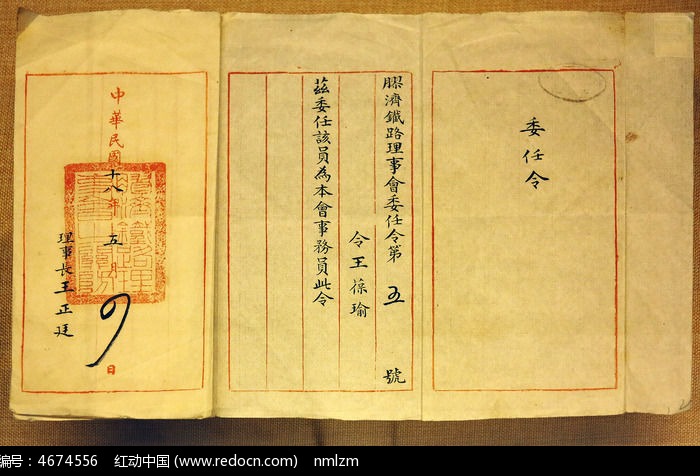 委任令
膠濟鐵路理事會委任令第五號
令王葆瑜
茲委任該員為本會事務員此令
中華民國十八年五月 日
理事長王正廷
编号：4674556 红动中国 (www.redocn.com) nmlzm